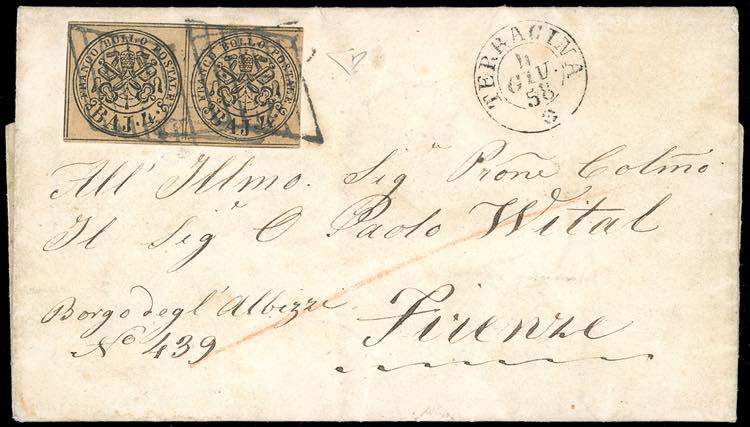 FRANCO BOLLO POSTALE
BAJ. 4.
FRANCO BOLLO POSTALE
BAJ. 4.
TERRACINA
11
GIU.
58
All' Illmo. Sigr Prone Colmo
Il Sigr C Paolo Wital
Borgo degl' Albizzi
No 439
Firenze